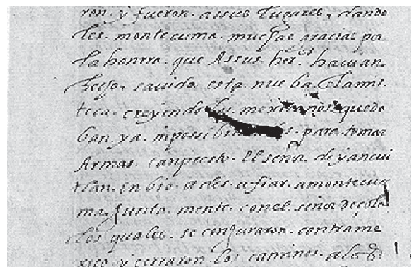 ron, y fueron. asus lugares, dando
les. montecuma muchas gracias po
la honrra. que Asus. hos. hauian
hecho. sauida esta nueba. Clami
teca. creyendo los mexicanos. quede
ban ya. inposibi s. para tomar
Armas. tanpresto. El señor. de yancui
tlan. Enbio a desafiar. amontecu
ma, Junto. mente. conel señor de çola
los quales. se conjuraron. contrame
xico. y cerraron los caminos. ala